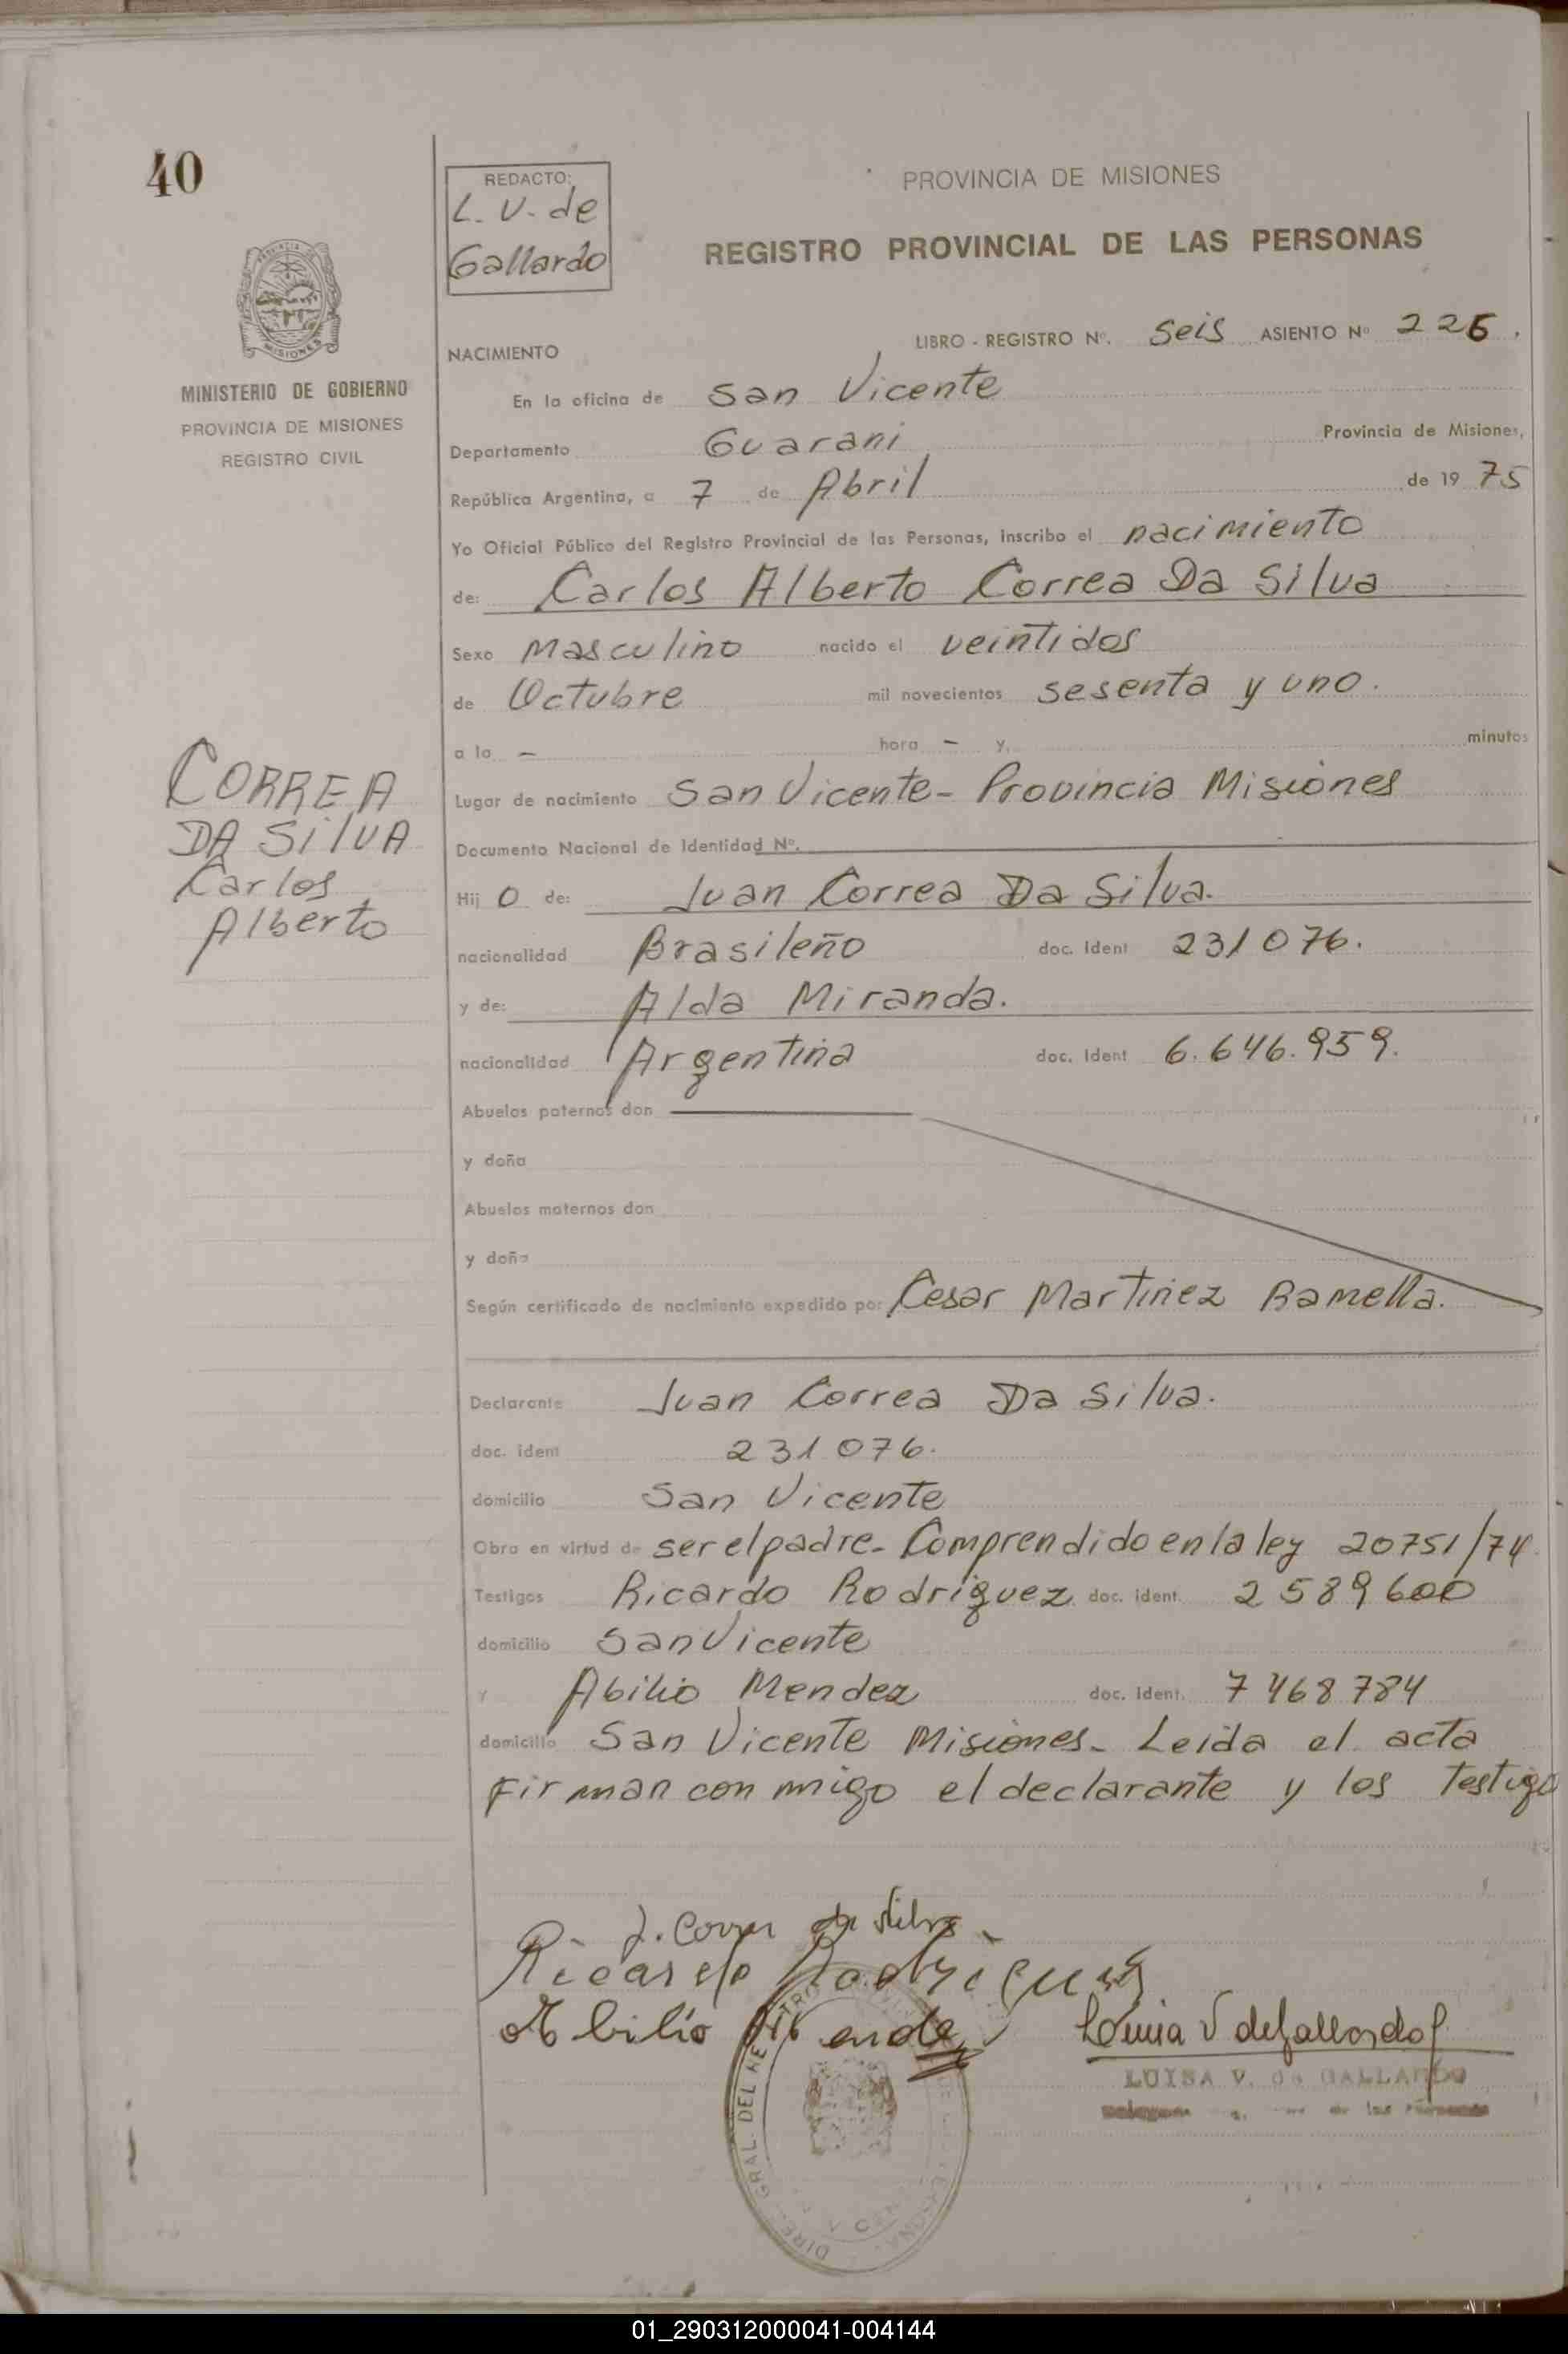 40
REDACTO:
L. V. de
Gallardo
PROVINCIA DE MISIONES
REGISTRO PROVINCIAL DE LAS PERSONAS
MISIONES
MINISTERIO DE GOBIERNO
PROVINCIA DE MISIONES
REGISTRO CIVIL
LIBRO - REGISTRO Nº. Seis ASIENTO Nº 226.
NACIMIENTO
En la oficina de San Vicente
Departamento Guarani Provincia de Misiones,
República Argentina, a 7 de Abril de 19 75
Yo Oficial Público del Registro Provincial de las Personas, inscribo el nacimiento
de: Carlos Alberto Correa Da Silva
Sexo Masculino nacido el veintidos
de Octubre mil novecientos sesenta y uno.
a la - hora - y minutos
CORREA
DA SilVA
Carlos
Alberto
Lugar de nacimiento San Vicente - Provincia Misiones
Documento Nacional de Identidad Nº.
Hij O de: Juan Correa Da Silva.
nacionalidad Brasileño doc. ident 231076.
y de: Alda Miranda.
nacionalidad Argentina doc. ident 6.646.959.
Abuelos paternos don
y doña
Abuelos maternos don
y doña
Según certificado de nacimiento expedido por Cesar Martinez Ramella.
Declarante Juan Correa Da Silva.
doc. ident 231076.
domicilio San Vicente
Obra en virtud de ser el padre - Comprendido en la ley 20751/74
Testigos Ricardo Rodriguez doc. ident. 2589600
domicilio San Vicente
y Abilio Mendez doc. ident. 7468784
domicilio San Vicente Misiones - Leida el acta
firman con migo el declarante y los testigo
J. Correa da Silva
Ricardo Rodrigues
Abilio Mendez
Luisa V de Gallardo
LUISA V. de GALLARDO
de las Personas
DIREC. GRAL. DEL REGISTRO
01_290312000041-004144